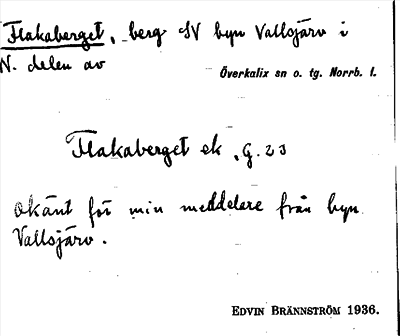 Flakaberget, berg SV byn Vallsjärv i
N. delen av
Överkalix sn o. tg. Norrb. l.
Flakaberget ek, G. 23
Okänt för min meddelare från byn
Vallsjärv.
EDVIN BRÄNNSTRÖM 1936.